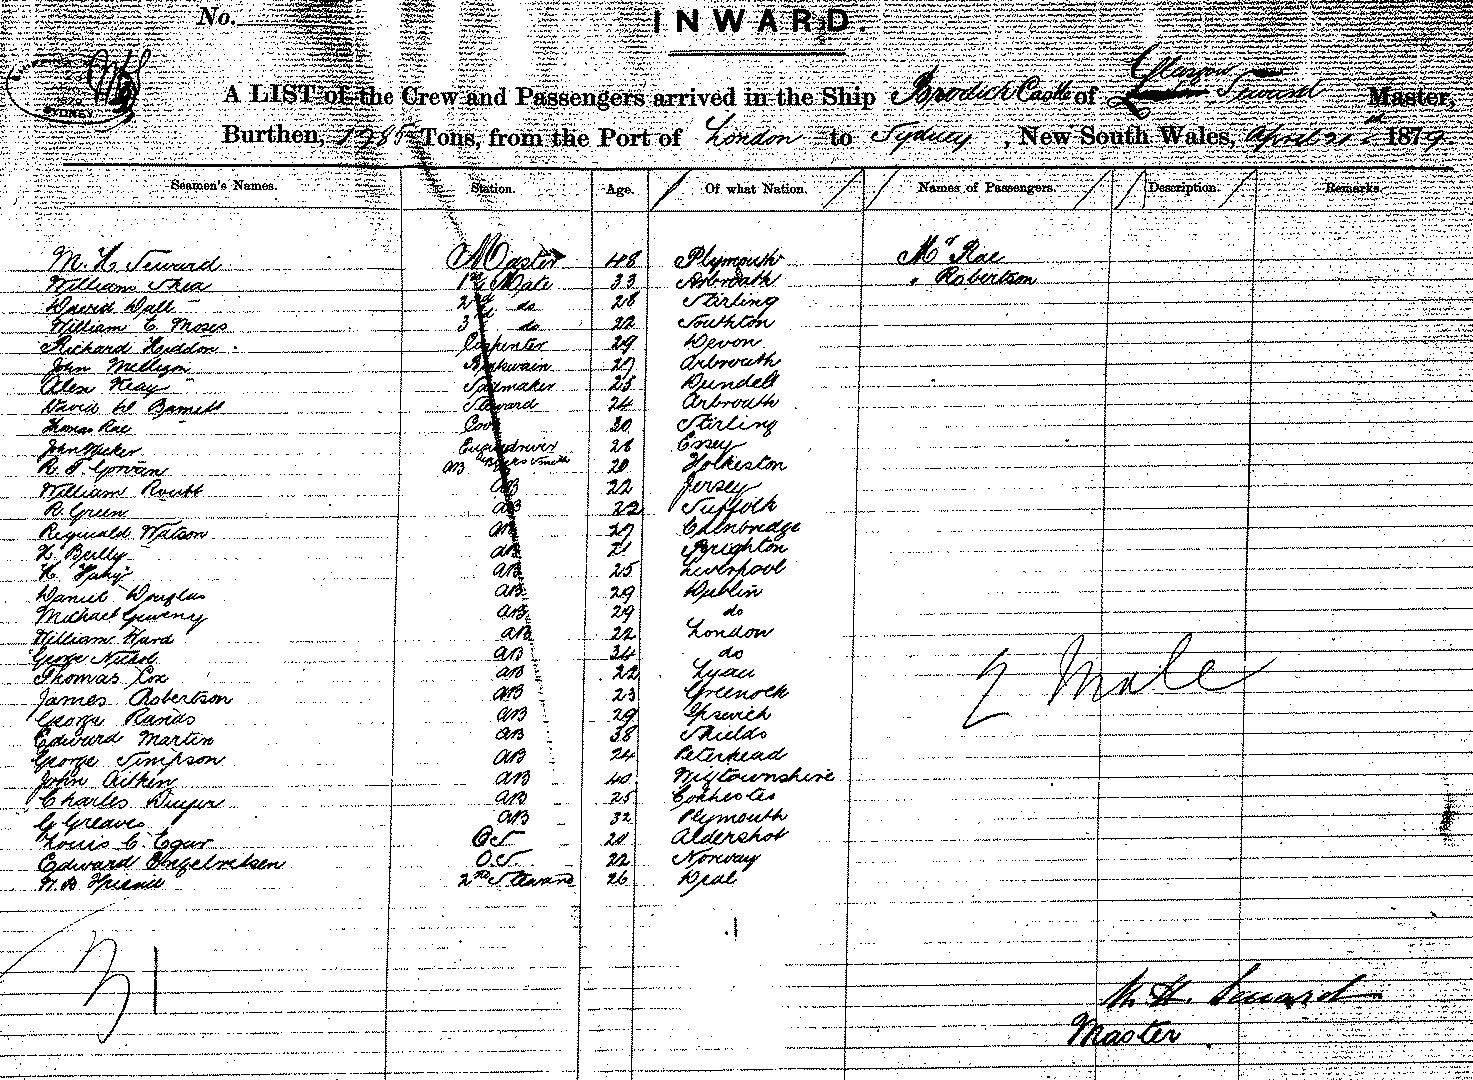 No.
INWARD.
SYDNEY
Glasgow
A LIST of the Crew and Passengers arrived in the Ship Brodick Castle of Seward Master,
Burthen, 1785 Tons, from the Port of London to Sydney, New South Wales, April 21st 1879.
Seamen's Names. Station. Age. Of what Nation. Names of Passengers. Description. Remarks.
M. H Seward Master 48 Plymouth Mr Rae
William Shea 1st Mate 33 Arbroath " Robertson
David Dall 2nd do 28 Stirling
William C. Moses 3rd do 22 Southton
Richard Heddon Carpenter 29 Devon
John 27 Arbroath
Alex Keay Sailmaker 25 Dundee
David Steward 24 Arbroath
Thomas Rae Cook 20 Stirling
28
AB 20
William AB 22 Jersey
R. Green AB 22 Suffolk
Reginald Watson AB 27
H. AB 21 Brighton
H. AB 25 Liverpool
Daniel Douglas AB 29 Dublin
Michael AB 29 do
William Hard AB 22 London
George Nichol AB 34 do
Thomas Cox AB 22
James Robertson AB 23 Greenock
George Rands AB 29 Ipswich
Edward Martin AB 38 Shields
George Simpson AB 24 Peterhead
John Aitken AB 40 Wigtownshire
Charles AB 25
G Greaves AB 32 Plymouth
Louis C. Egar OS 20 Aldershot
Edward Engelretsen O.S. 22 Norway
2nd Steward 26 Deal
2 Male
31
M. H. Seward
Master